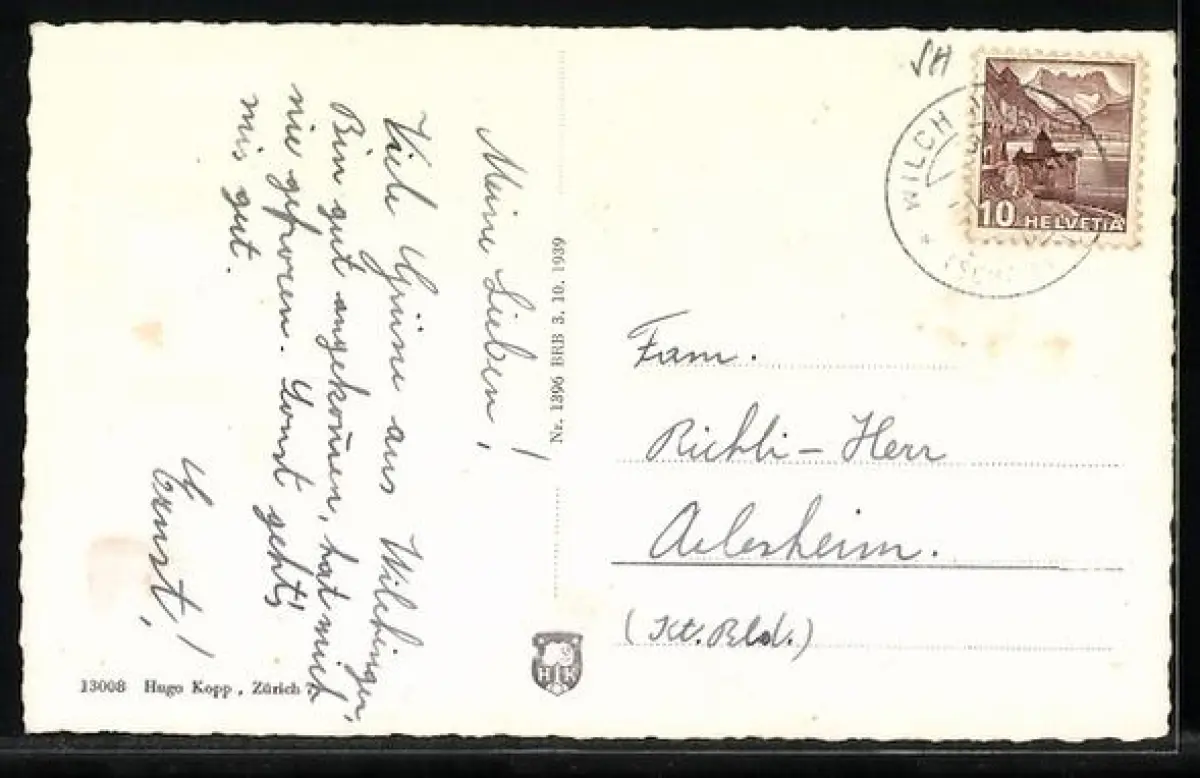 Meine Lieben!
Viele Grüsse aus Wilchingen,
Bin gut angekom̄en, hat mich
nie gefroren. Sonst geht's
mir gut.
Ernst!
Nr. 1396 BRB 3. 10. 1939
13008 Hugo Kopp, Zürich 7
H K
SH
WILCH
10 HELVETIA
Fam.
Richli - Herr
Arlesheim.
(Kt. Bld.)